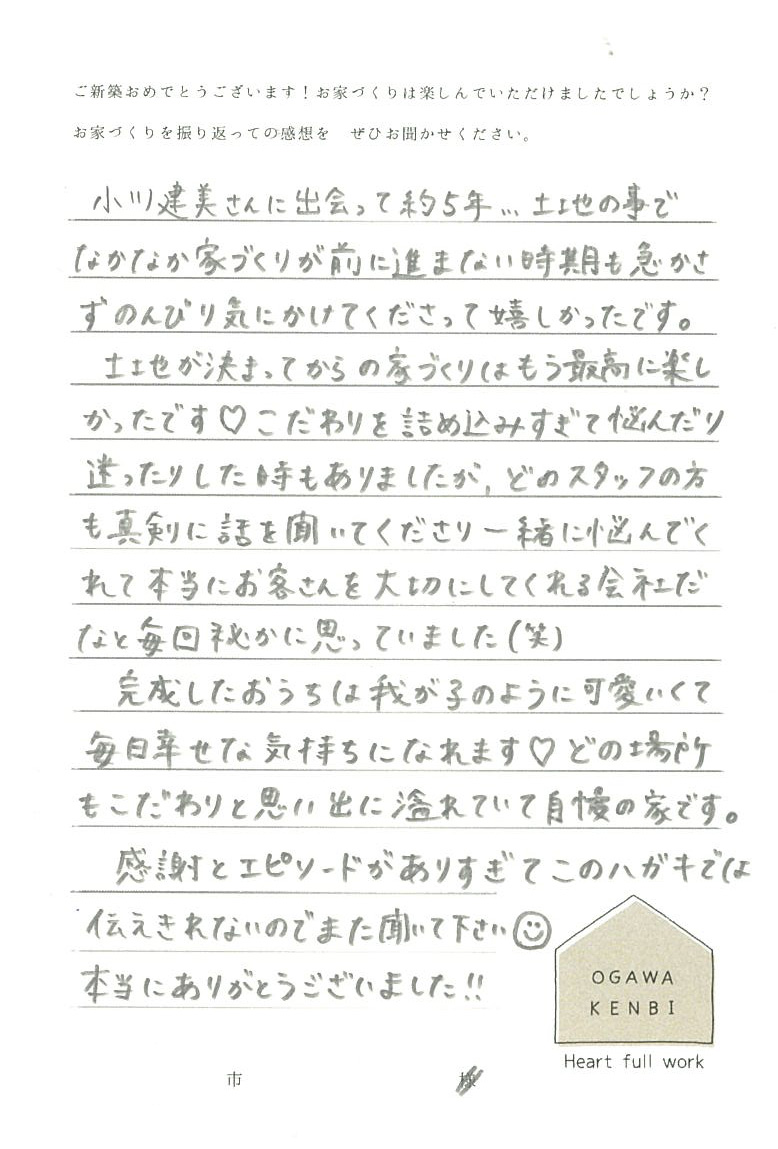 ご新築おめでとうございます！お家づくりは楽しんでいただけましたでしょうか？
お家づくりを振り返っての感想を　ぜひお聞かせください。
小川建美さんに出会って約5年… 土地の事で
なかなか家づくりが前に進まない時期も急かさ
ずのんびり気にかけてくださって嬉しかったです。
土地が決まってからの家づくりはもう最高に楽し
かったです♡こだわりを詰め込みすぎて悩んだり
迷ったりした時もありましたが、どのスタッフの方
も真剣に話を聞いてくださり一緒に悩んでく
れて本当にお客さんを大切にしてくれる会社だ
なと毎回秘かに思っていました(笑)
完成したおうちは我が子のように可愛いくて
毎日幸せな気持ちになれます♡どの場所
もこだわりと思い出に溢れていて自慢の家です。
感謝とエピソードがありすぎてこのハガキでは
伝えきれないのでまた聞いて下さい☺
本当にありがとうございました!!
OGAWA
KENBI
Heart full work
市　様